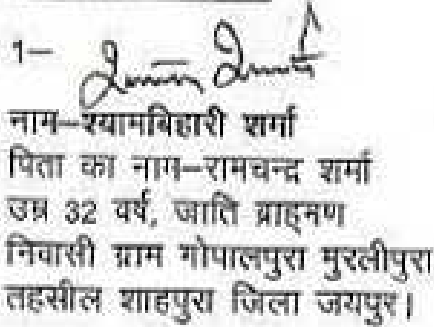 1–
नाम–श्यामबिहारी शर्मा
पिता का नाम–रामचन्द्र शर्मा
उम्र 32 वर्ष, जाति ब्राह्मण
निवासी ग्राम गोपालपुरा मुरलीपुरा
तहसील शाहपुरा जिला जयपुर।